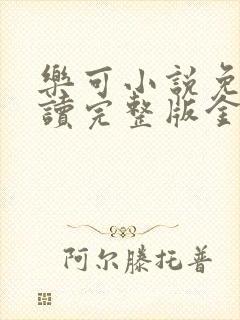 樂可小説免
讀完整版全
阿尔滕托普